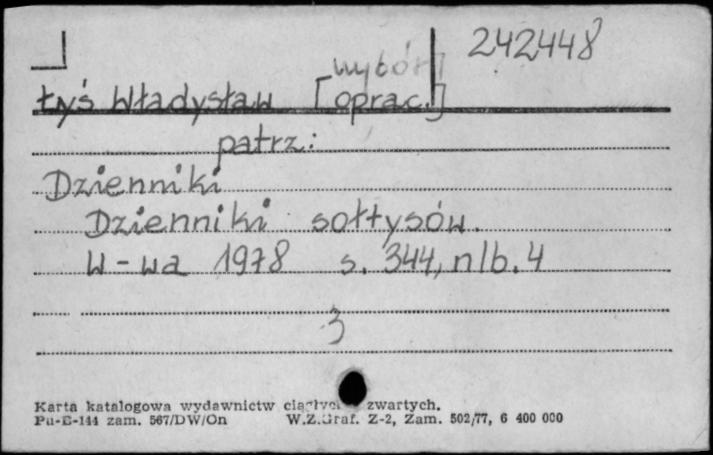 242448
wybór
Łyś Władysław [oprac.]
patrz:
Dzienniki
Dzienniki sołtysów.
W-wa 1978 s. 344, nlb. 4
3
Karta katalogowa wydawnictw zwartych.
Pu-E-144 zam. 567/DW/On W.Z.Graf. Z-2, Zam. 502/77, 6 400 000